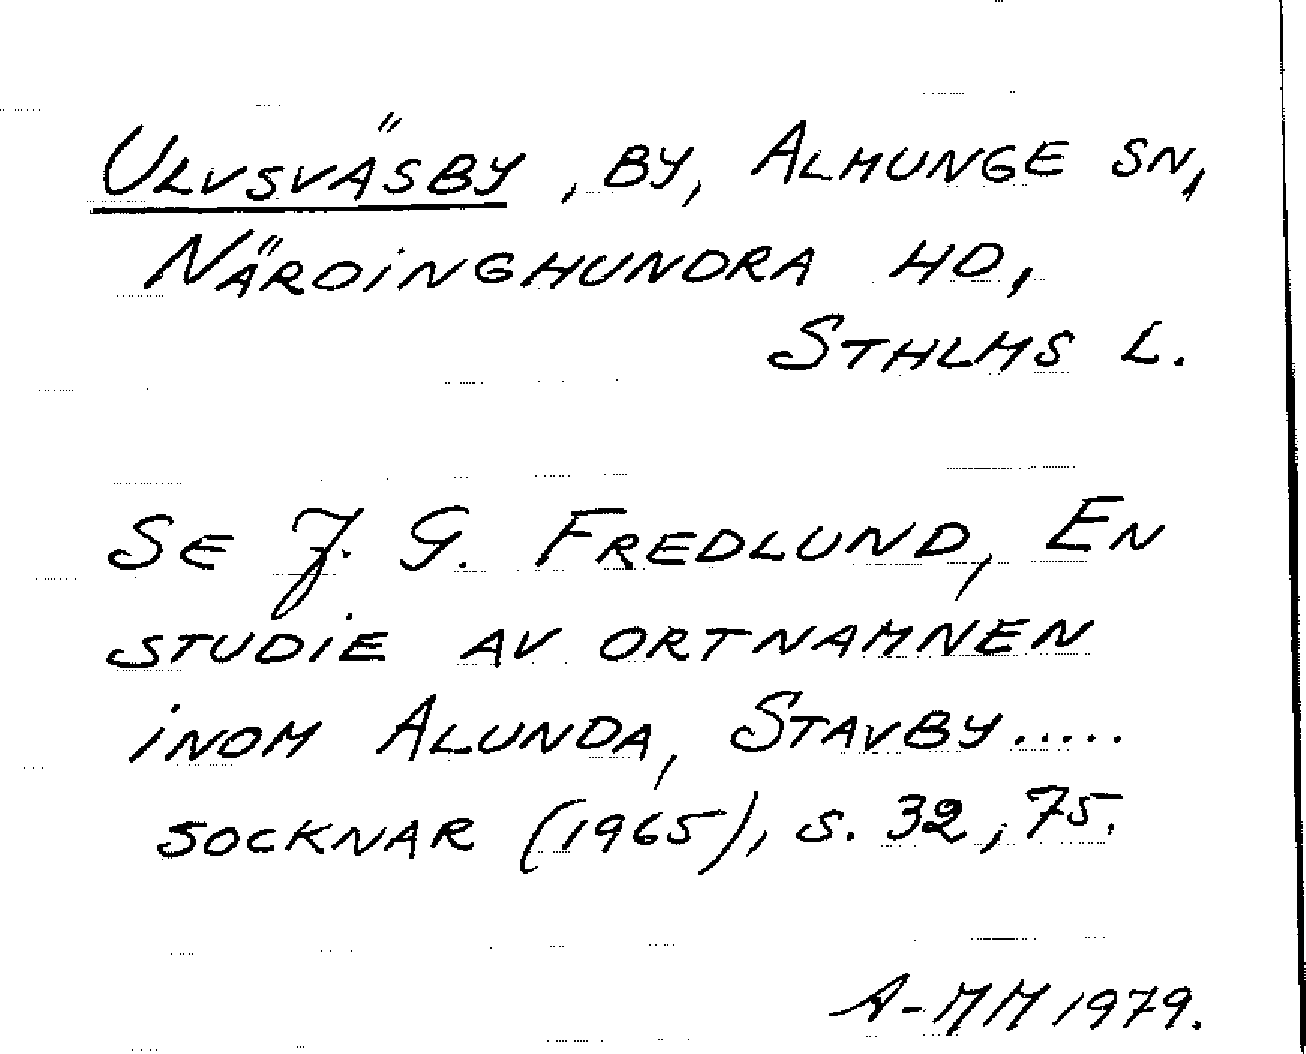 Ulvsväsby, by, Almunge sn,
Närdinghundra hd,
Sthlms l.
Se J. G. Fredlund, En
studie av ortnamnen
inom Alunda, Stavby.....
socknar (1965), s. 32, 75.
A-MM 1979.